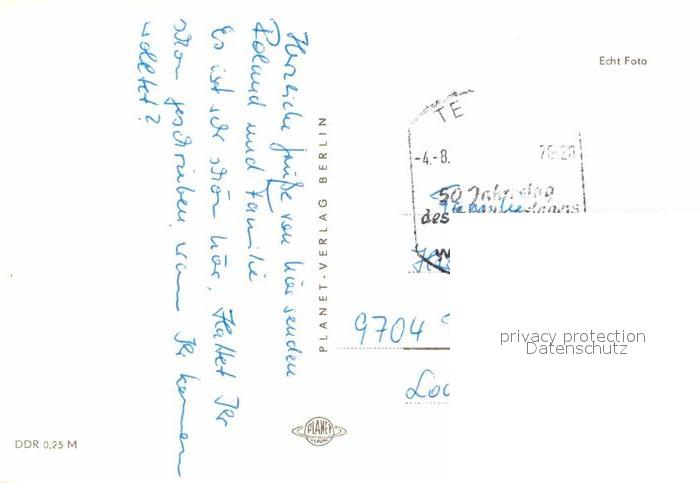 Herzliche Grüße von hier senden
Roland und Familie
Es ist sehr schön hier. Hattet Ihr
schon geschrieben, wann Ihr kommen
wolltet?
PLANET-VERLAG BERLIN
Echt Foto
TE
-4.-8.
50 Jahrestag
des
9704
privacy protection
Datenschutz
PLANET
VERLAG
DDR 0,25 M